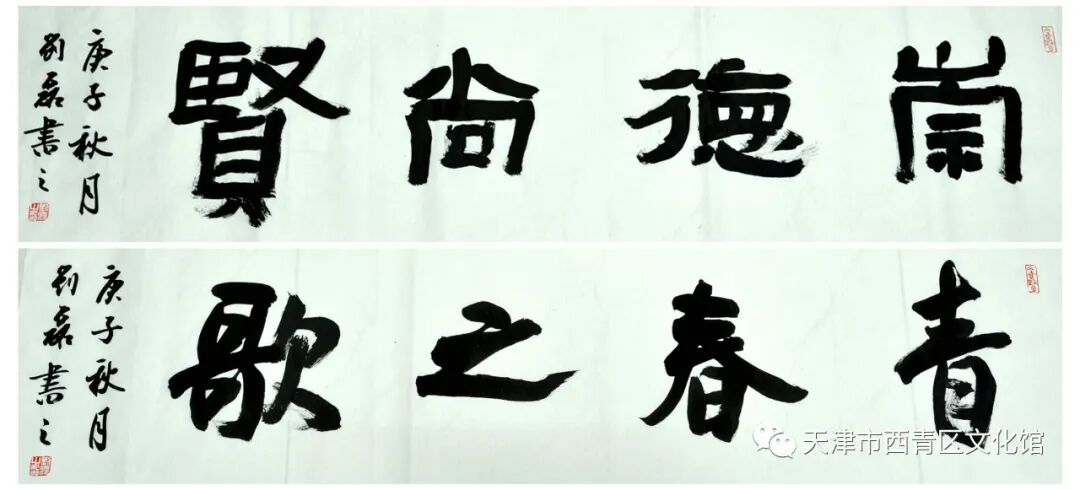 崇德尚賢
庚子秋月
刘磊書之
青春之歌
庚子秋月
刘磊書之
天津市西青区文化馆